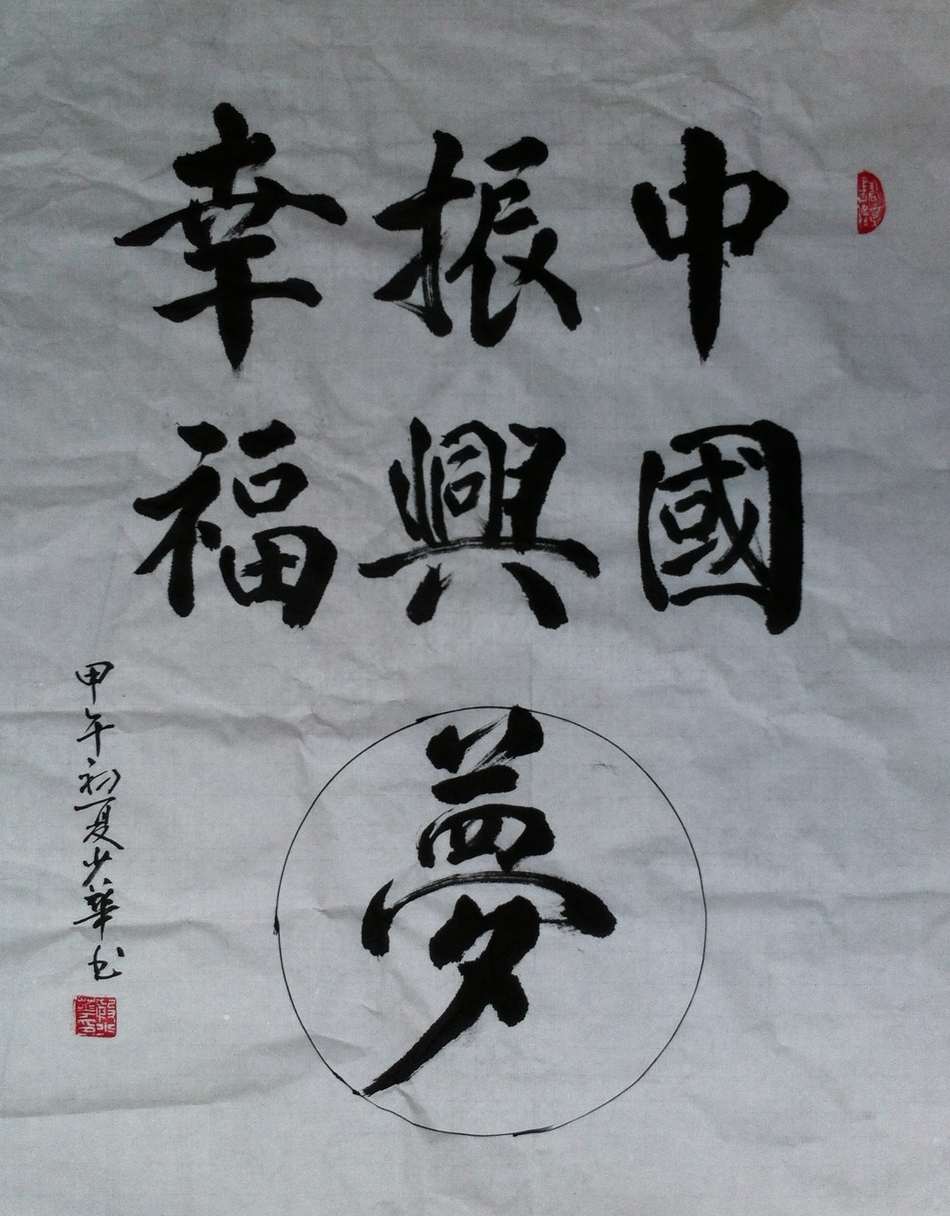 中國
振興
幸福
夢
甲午初夏少華书